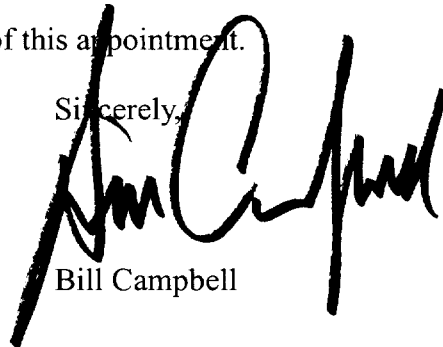 of this appointment.
Sincerely,
Bill Campbell